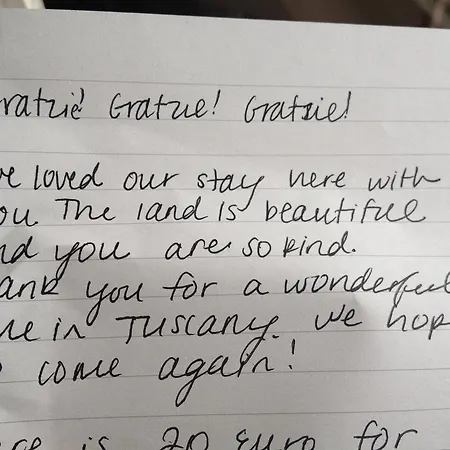 ratzie! Gratzie! Gratzie!
ve loved our stay here with
ou The land is beautiful
nd you are so kind.
ank you for a wonderful
me in Tuscany. We hop
o come again!
ere is 20 Euro for